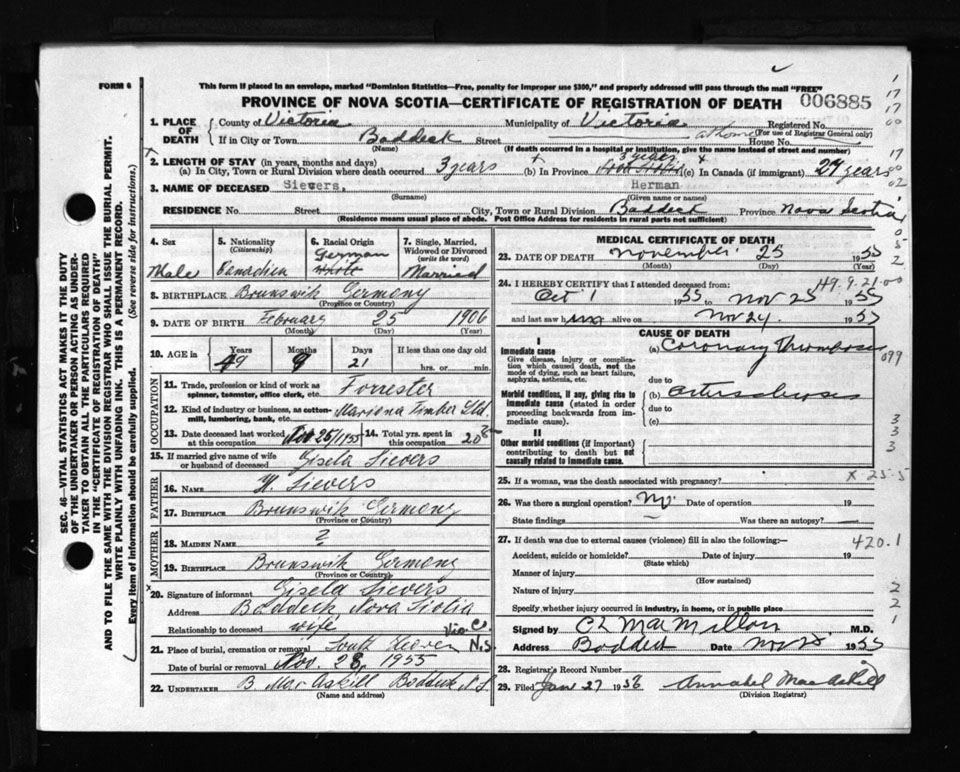 FORM 6
This form if placed in an envelope, marked "Dominion Statistics—Free, penalty for improper use $300," and properly addressed will pass through the mail "FREE"
PROVINCE OF NOVA SCOTIA—CERTIFICATE OF REGISTRATION OF DEATH 006885
1. PLACE OF DEATH { County of Victoria Municipality of Victoria Registered No.
(For use of Registrar General only)
If in City or Town Baddeck Street at home House No.
(Name) (If death occurred in a hospital or institution, give the name instead of street and number)
2. LENGTH OF STAY (in years, months and days)
(a) In City, Town or Rural Division where death occurred 3 years (b) In Province 3 years (c) In Canada (if immigrant) 27 years
3. NAME OF DECEASED Sievers, Herman
(Surname) (Given name or names)
RESIDENCE No. Street City, Town or Rural Division Baddeck Province Nova Scotia
(Residence means usual place of abode. Post Office Address for residents in rural parts not sufficient)
4. Sex Male
5. Nationality (Citizenship) Canadian
6. Racial Origin German White
7. Single, Married, Widowed or Divorced (write the word) Married
8. BIRTHPLACE Brunswik Germony
(Province or Country)
9. DATE OF BIRTH February 25 1906
(Month) (Day) (Year)
10. AGE in Years Months Days If less than one day old
49 9 21 hrs. or min.
OCCUPATION
11. Trade, profession or kind of work as spinner, teamster, office clerk, etc. Forrester
12. Kind of industry or business, as cotton-mill, lumbering, bank, etc. Timber Ltd.
13. Date deceased last worked at this occupation Nov 25/1955
14. Total yrs. spent in this occupation 20
15. If married give name of wife or husband of deceased Gisela Sievers
FATHER
16. NAME H. Sievers
17. BIRTHPLACE Brunswik Germony
(Province or Country)
MOTHER
18. MAIDEN NAME ?
19. BIRTHPLACE Brunswik Germony
(Province or Country)
20. Signature of informant Gisela Sievers
Address Baddeck, Nova Scotia
Relationship to deceased wife
21. Place of burial, cremation or removal South Vic Co. N.S.
Date of burial or removal Nov. 28, 1955
22. UNDERTAKER B. MacAskill Baddeck N.S.
(Name and address)
MEDICAL CERTIFICATE OF DEATH
23. DATE OF DEATH November 25 1955
(Month) (Day) (Year)
24. I HEREBY CERTIFY that I attended deceased from: 149.9.21.00
Oct 1 1955 to Nov 25 1955
and last saw him alive on Nov 24 1955
CAUSE OF DEATH
I
Immediate cause (a) Coronary Thrombosis 099
Give disease, injury or complication which caused death, not the mode of dying, such as heart failure, asphyxia, asthenia, etc.
due to
Morbid conditions, if any, giving rise to immediate cause (stated in order proceeding backwards from immediate cause). (b) Arteriosclerosis
due to
(c)
II
Other morbid conditions (if important) contributing to death but not causally related to immediate cause.
25. If a woman, was the death associated with pregnancy? x 25-5
26. Was there a surgical operation? No Date of operation 19
State findings Was there an autopsy?
27. If death was due to external causes (violence) fill in also the following:— 420.1
Accident, suicide or homicide? Date of injury 19
(State which)
Manner of injury
(How sustained)
Nature of injury
Specify whether injury occurred in industry, in home, or in public place
Signed by C L MacMillan M.D.
Address Baddeck Date Nov 28 1955
28. Registrar's Record Number
29. Filed Jan 27 1956 Annabel MacAskill
(Division Registrar)
SEC. 46—VITAL STATISTICS ACT MAKES IT THE DUTY
OF THE UNDERTAKER OR PERSON ACTING AS UNDER-
TAKER TO OBTAIN ALL THE PARTICULARS REQUIRED
IN THE "CERTIFICATE OF REGISTRATION OF DEATH"
AND TO FILE THE SAME WITH THE DIVISION REGISTRAR WHO SHALL ISSUE THE BURIAL PERMIT.
WRITE PLAINLY WITH UNFADING INK. THIS IS A PERMANENT RECORD.
Every item of information should be carefully supplied. (See reverse side for instructions.)